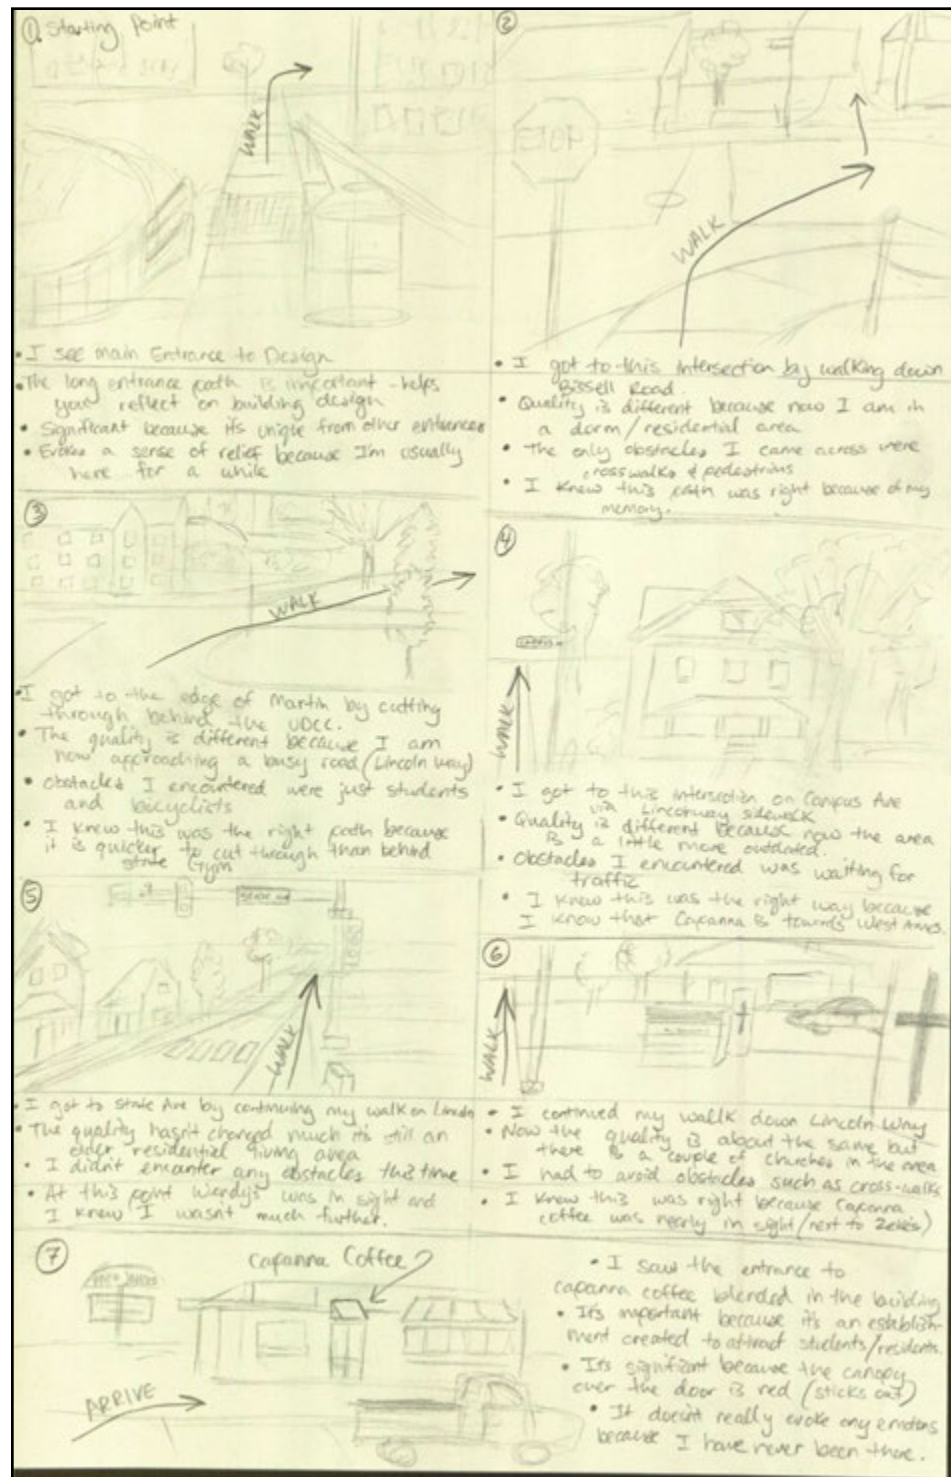 1. Starting Point
WALK
• I see main Entrance to Design
• The long entrance path is important - helps
you reflect on building design
• Significant because its unique from other entrances
• Evokes a sense of relief because I'm usually
here for a while
2
STOP
WALK
• I got to this intersection by walking down
Bissell Road.
• Quality is different because now I am in
a dorm/residential area
• The only obstacles I came across were
crosswalks & pedestrians
• I knew this path was right because of my
memory.
3
WALK
• I got to the edge of Martin by cutting
through behind the UDCC.
• The quality is different because I am
now approaching a busy road (Lincoln Way)
• obstacles I encountered were just students
and bicyclists
• I knew this was the right path because
it is quicker to cut through than behind
State Gym
4
CAMPUS
WALK
• I got to this intersection on Campus Ave
via Lincolnway sidewalk
• Quality is different because now the area
is a little more outdated.
• Obstacles I encountered was waiting for
traffic
• I knew this was the right way because
I know that Capanna is towards West Ames.
5
WALK
• I got to State Ave by continuing my walk on Lincoln
• The quality hasn't changed much it's still an
older, residential living area
• I didn't encounter any obstacles this time
• At this point Wendy's was in sight and
I knew I wasn't much further.
6
WALK
• I continued my wallk down Lincoln Way
• Now the quality is about the same but
there is a couple of churches in the area
• I had to avoid obstacles such as cross-walks
• I knew this was right because Capanna
coffee was nearly in sight/(next to Zeke's)
7
Capanna Coffee
ARRIVE
• I saw the entrance to
capanna coffee blended in the building
• It's important because it's an establish-
ment created to attract students/residents.
• Its significant because the canopy
over the door is red (sticks out)
• It doesn't really evoke any emotions
because I have never been there.